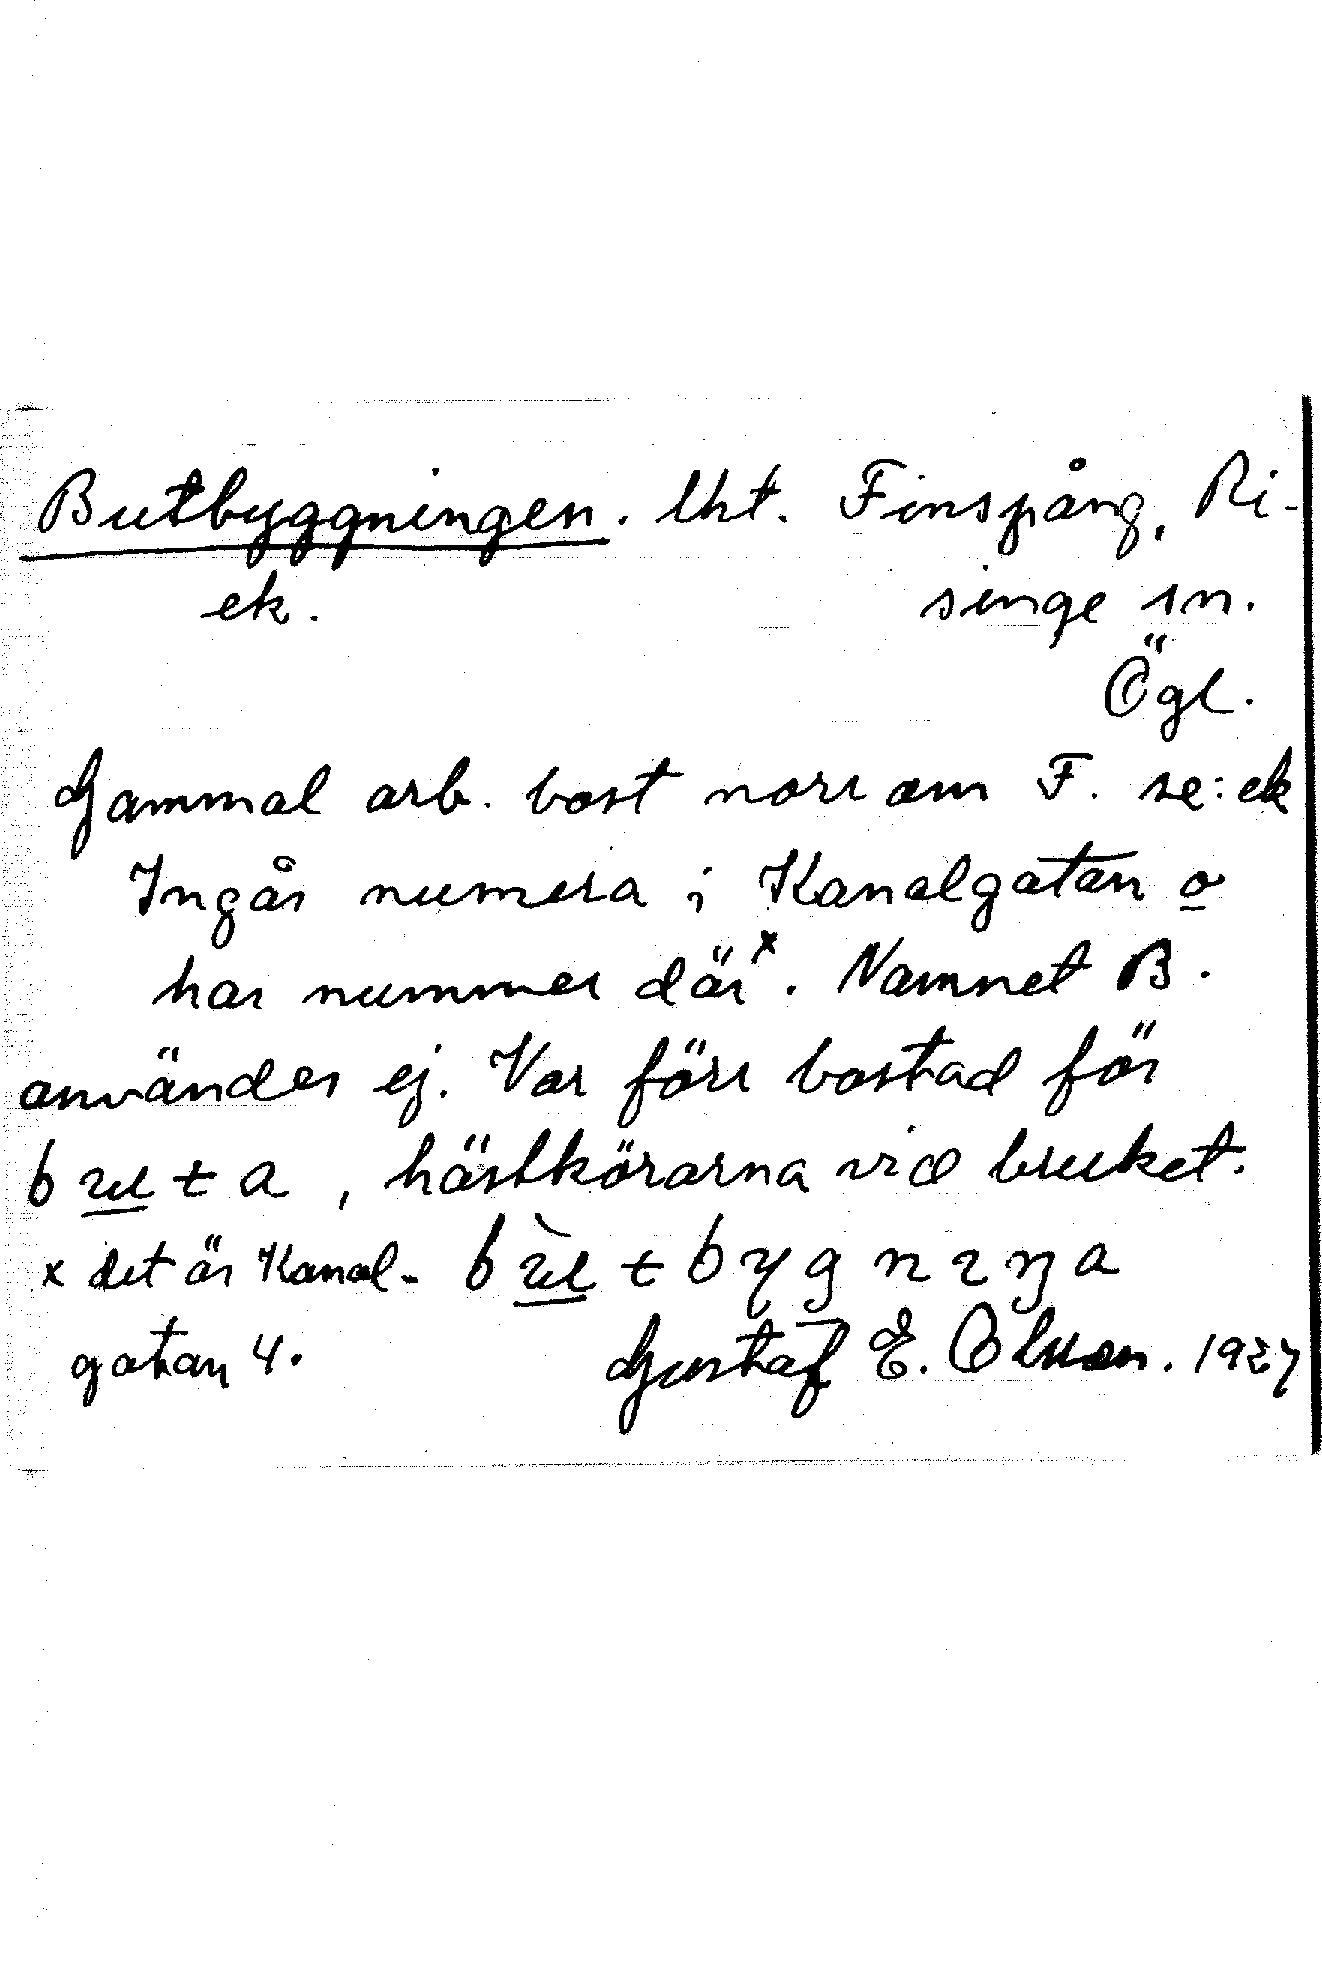 Butbyggningen. lht. Finspång, Ri-
ek. singe sn.
Ögl.
Gammal arb. bost norr om F. se: ek
Ingår numera i Kanalgatan o
har nummer där x. Namnet B.
användes ej. Var förr bostad för
buta, hästkörarna vid bruket.
x det är Kanal- bùtbygnıŋa
gatan 4. Gustaf E. Olsson. 1927